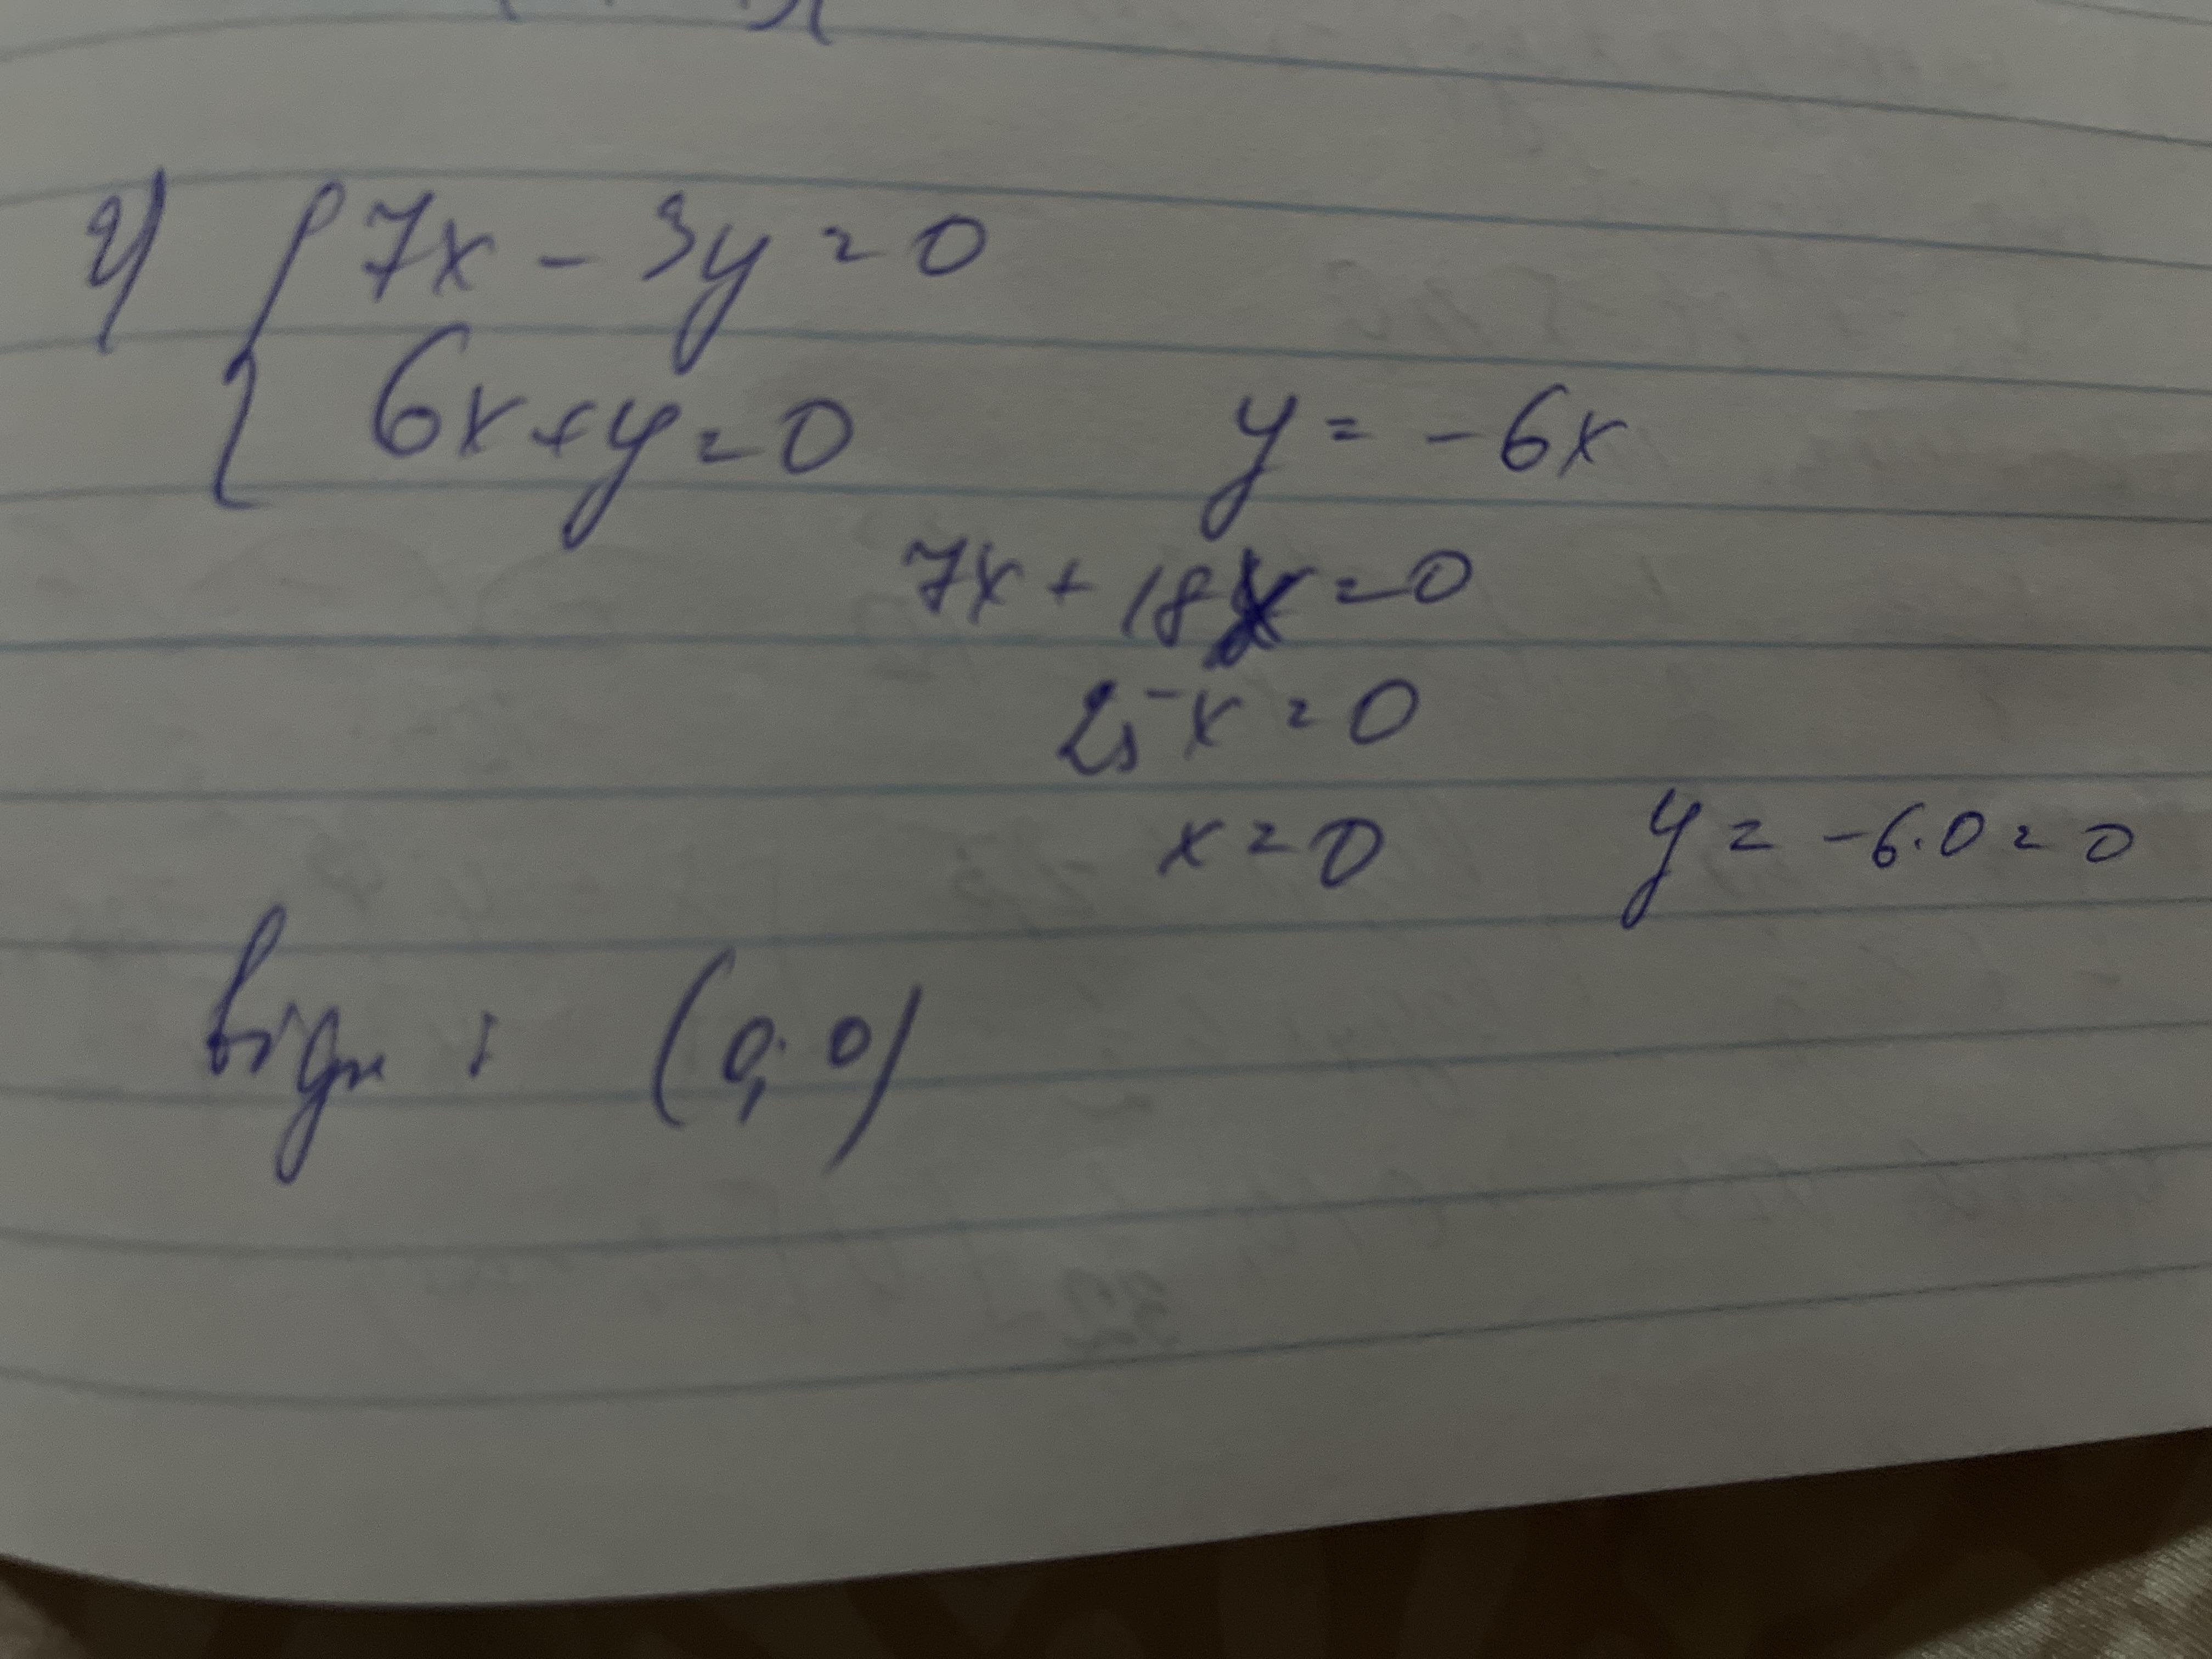 2) { 7x - 3y = 0
6x + y = 0 y = -6x
7x + 18x = 0
25x = 0
x = 0 y = -6·0 = 0
Відп: (0; 0)